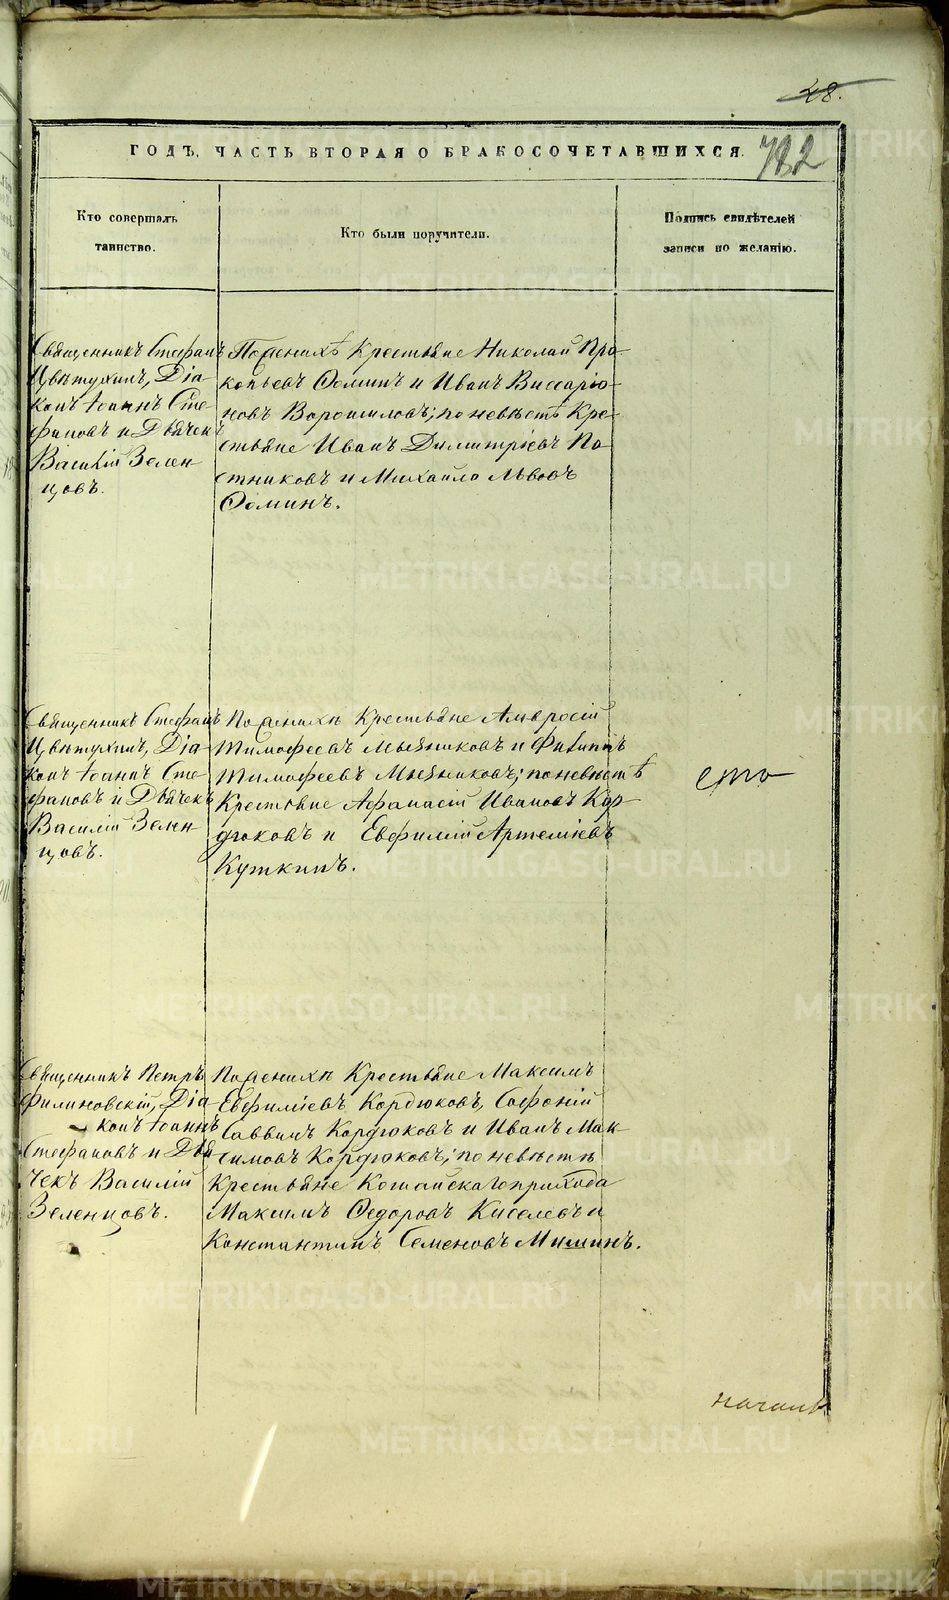 28.
ГОДЪ, ЧАСТЬ ВТОРАЯ О БРАКОСОЧЕТАВШИХСЯ.
782
Кто совершалъ
таинство.
Кто были поручители.
Подпись свидѣтелей
записи по желанію.
Священникъ Стефанъ
Цвѣтухинъ, Діа-
конъ Іоаннъ Сте-
фановъ и Дьячекъ
Василій Зелен-
цовъ.
По женихѣ Крестьяне Николай Про-
копьевъ Ѳоминъ и Иванъ Виссаріо-
новъ Ворошиловъ; по невѣстѣ Кре-
стьяне Иванъ Димитріевъ По-
стниковъ и Михайло Львовъ
Ѳоминъ.
Священникъ Стефанъ
Цвѣтухинъ, Діа-
конъ Іоаннъ Сте-
фановъ и Дьячекъ
Василій Зелен-
цовъ.
По женихѣ Крестьяне Амвросій
Тимофеевъ Мызниковъ и Филиппъ
Тимофеевъ Мызниковъ; по невѣстѣ
Крестьяне Афанасій Ивановъ Кор-
дюковъ и Евфимій Артеміевъ
Куткинъ.
сто
Священникъ Петръ
Филиновскій, Діа-
конъ Іоаннъ
Стефановъ и Дья-
чекъ Василій
Зеленцовъ.
По женихѣ Крестьяне Максимъ
Евфиміевъ Кордюковъ, Софоній
Саввинъ Кордюковъ и Иванъ Мак-
симовъ Кордюковъ; по невѣстѣ
Крестьяне Кошайскаго прихода
Максимъ Ѳедоровъ Киселевъ и
Константинъ Семеновъ Мишинъ.
METRIKI.GASO-URAL.RU